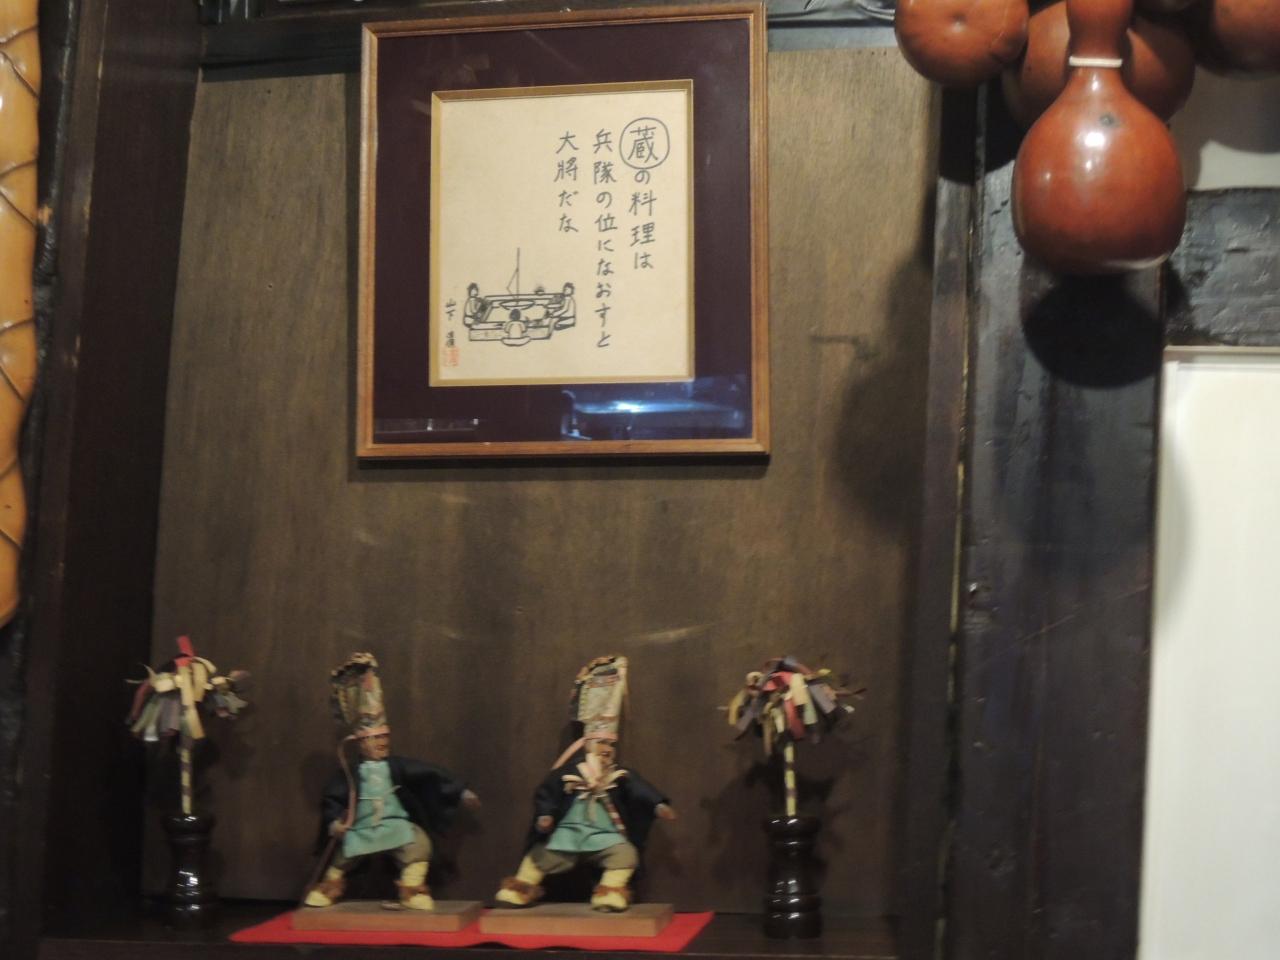 蔵の料理は
兵隊の位になおすと
大将だな
山下清